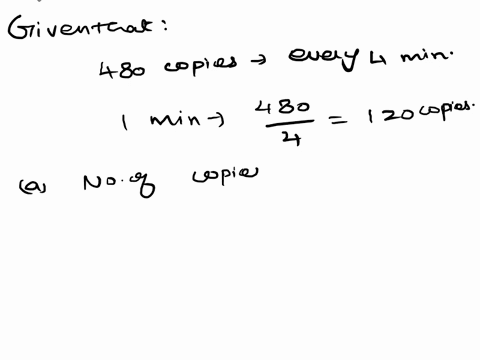 Given that:
480 copies → every 4 min.
1 min → 480/4 = 120 copies.
(a) No. of copie